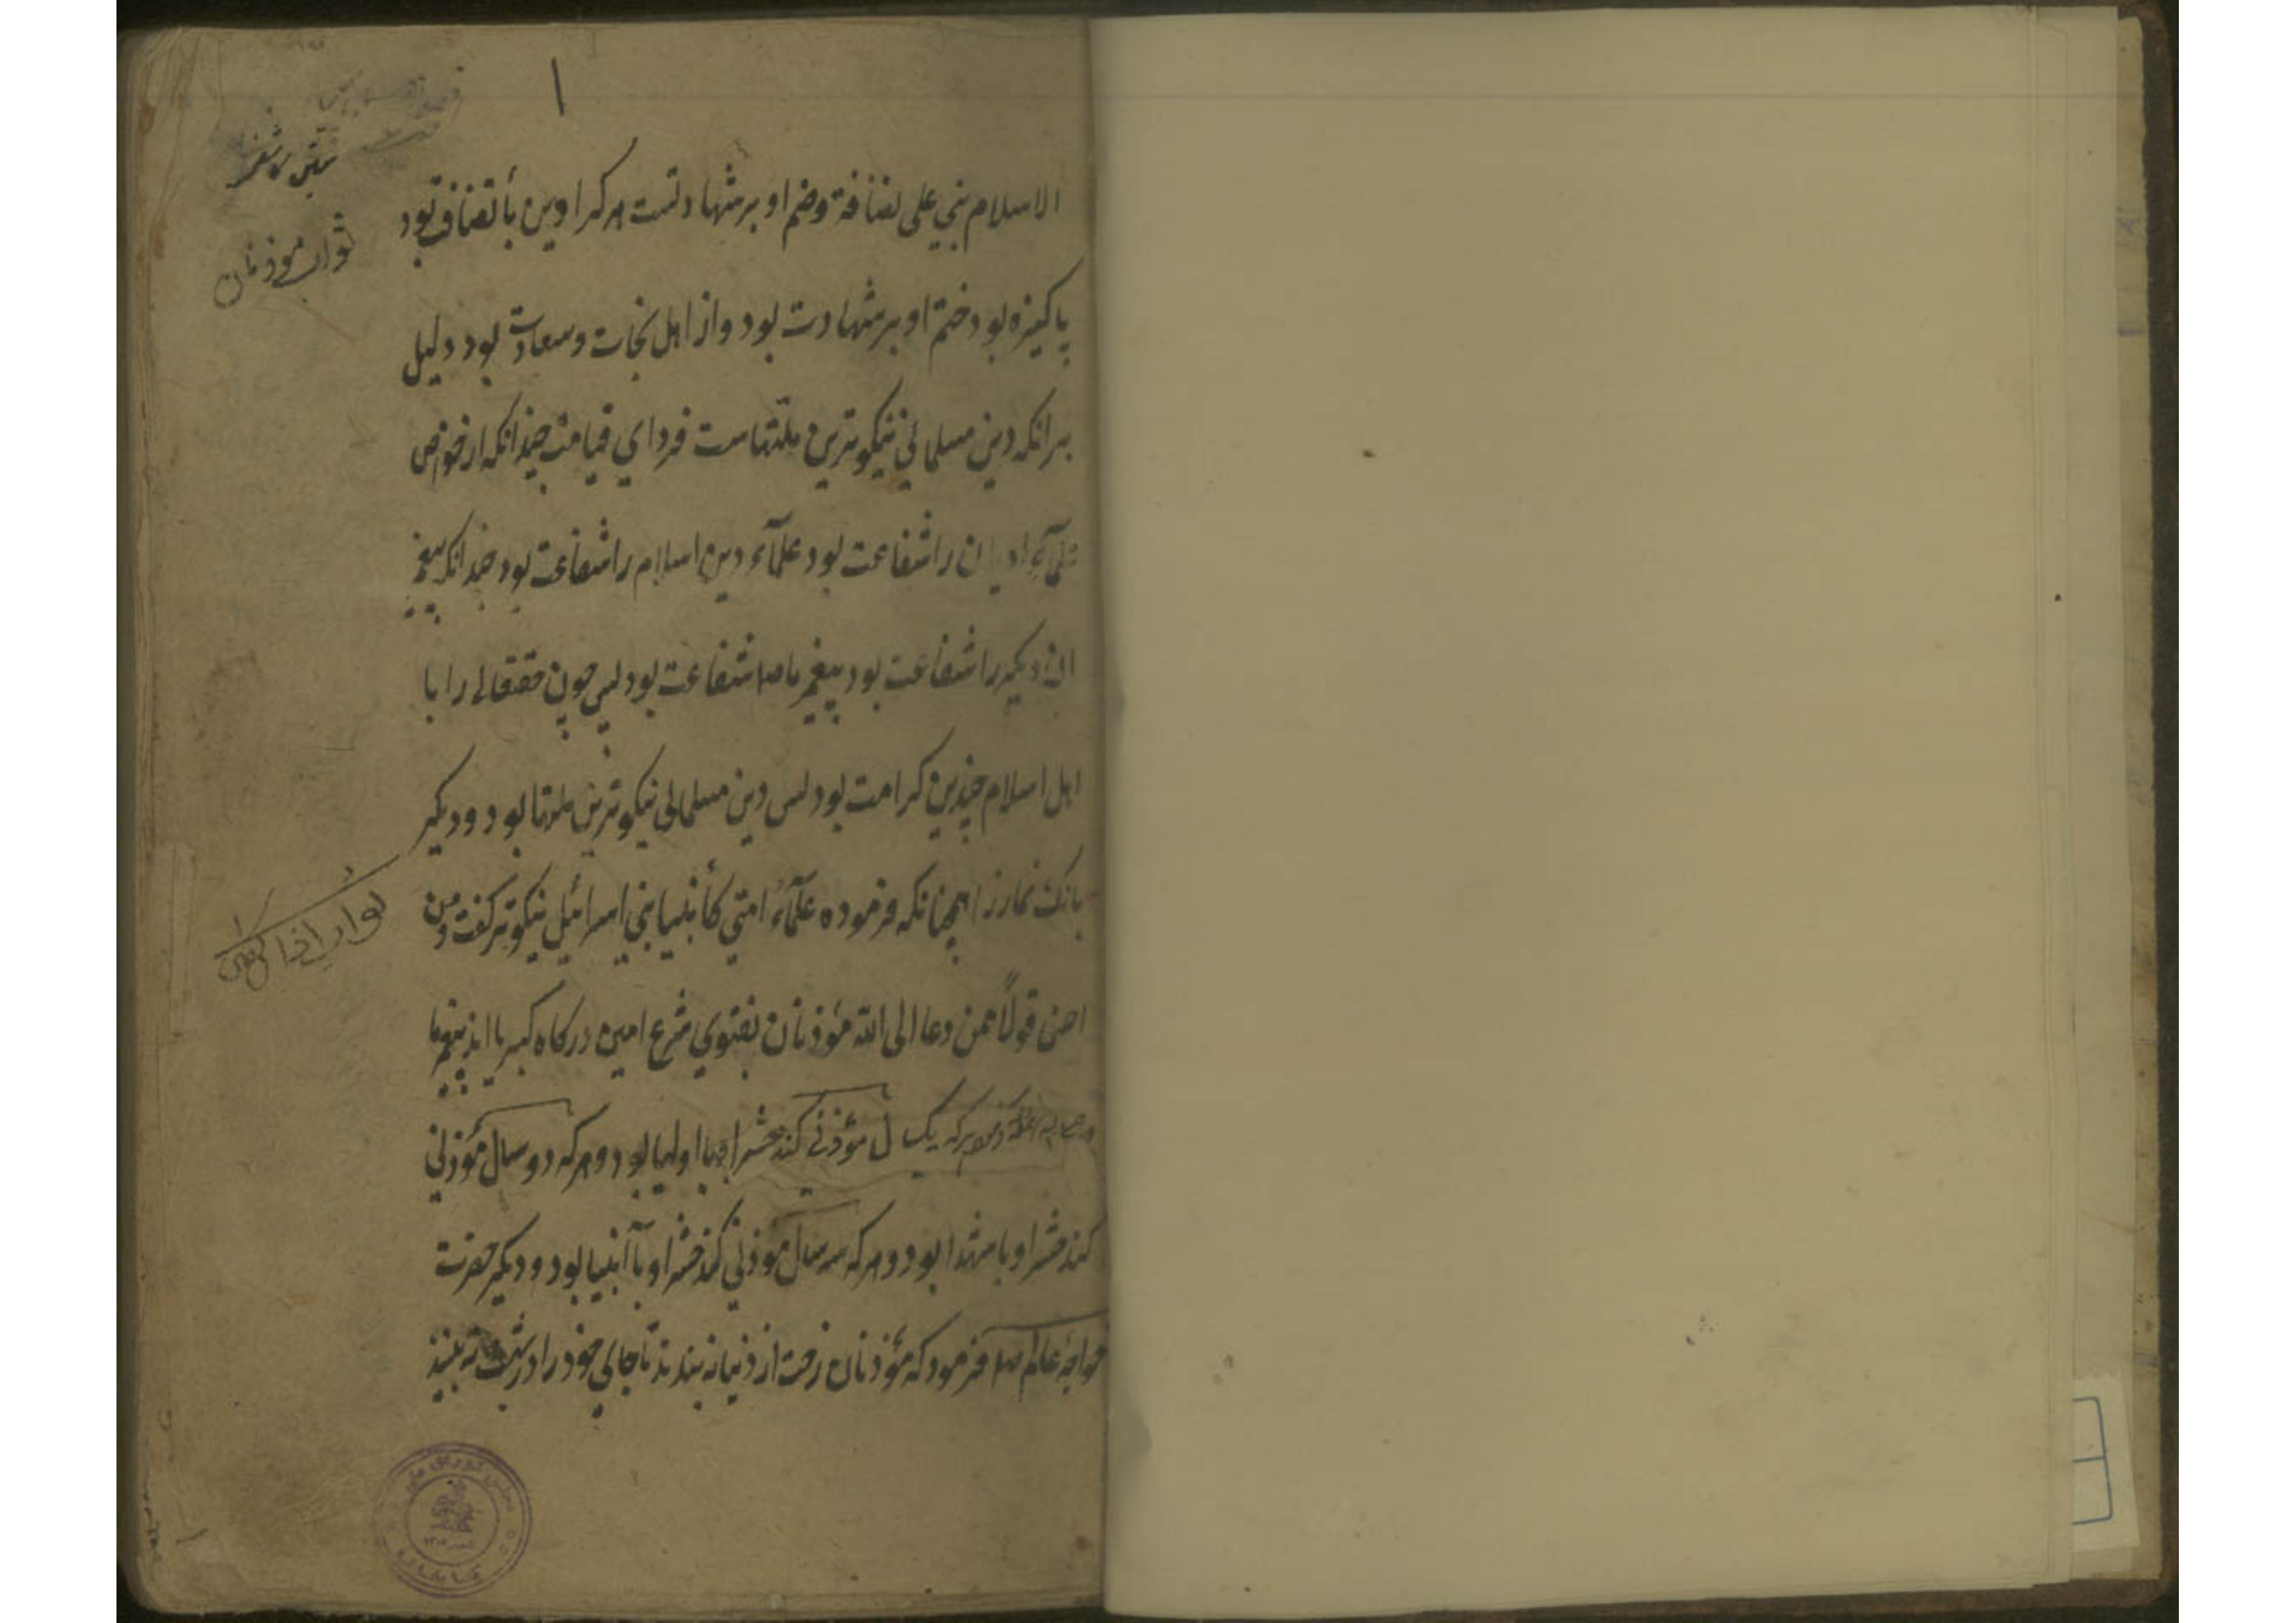 ۱
الاسلام بني على نضافة وضم او بر شهادتست هر کرا دین با نضافت بود
پاکیزه بود ختم او بر شهادت بود و از اهل نجات و سعادت بود دلیل
برانکه دین مسلماني نیکوترین ملتهاست فرداي قیامت چندانکه از خواص
علمآء ادیان را شفاعت بود علمآء دین اسلام را شفاعت بود چندانکه پیغمبر
ان دیکر را شفاعت بود پیغمبر ما را شفاعت بود پس چون حقتعالی را با
اهل اسلام چندین کرامت بود پس دین مسلمانی نیکوترین ملتها بود و دیکر
بانک نماز را همچنانکه فرموده علمآء امتي کأنبیا بني اسرائیل نیکوتر کفت و من
احسن قولاً ممن دعا الی الله مؤذنان بفتوي شرع امین درکاه کبریا اند پیغمبر ما
هرکه یک سال مؤذني کند حشر او با اولیا بود و هرکه دو سال مؤذني
کند حشر او با شهدا بود و هرکه سه سال موذنی کند حشر او با انبیا بود و دیکر حضرت
خواجه عالم فرمود که مؤذنان رخت از دنیا نه بندند تا جای خود را در بهشت نه بینند
ثواب موذنان
ثواب اذان کفتن